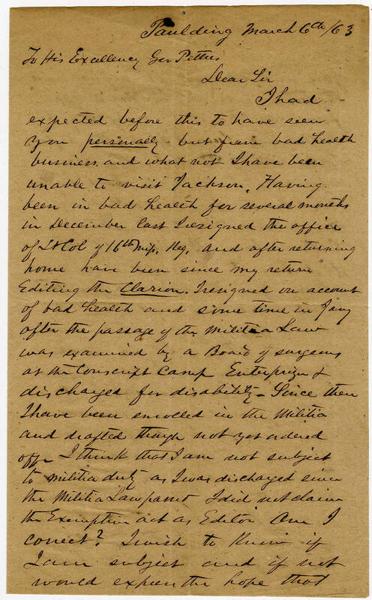 Paulding March 6th /63
To His Excellency Gov Pettus
Dear Sir
I had
expected before this to have seen
you personally but from bad health
business and what not I have been
unable to visit Jackson. Having
been in bad health for several months
in December last I resigned the office
of Lt Col of 16th Miss. Reg. and after returning
home have been since my return
Editing the Clarion. I resigned on account
of bad health and some time in Jany
after the passage of the Militia Law
was examined by a Board of surgeons
at the Conscript Camp Enterprise &
discharged for disability - Since then
I have been enrolled in the Militia
and drafted though not yet ordered
off - I think that I am not subject
to militia duty as I was discharged since
the Militia Law passed I did not claim
the Exemption act as Editor Am I
correct? I wish to know if
I am subject and if not
would express the hope that